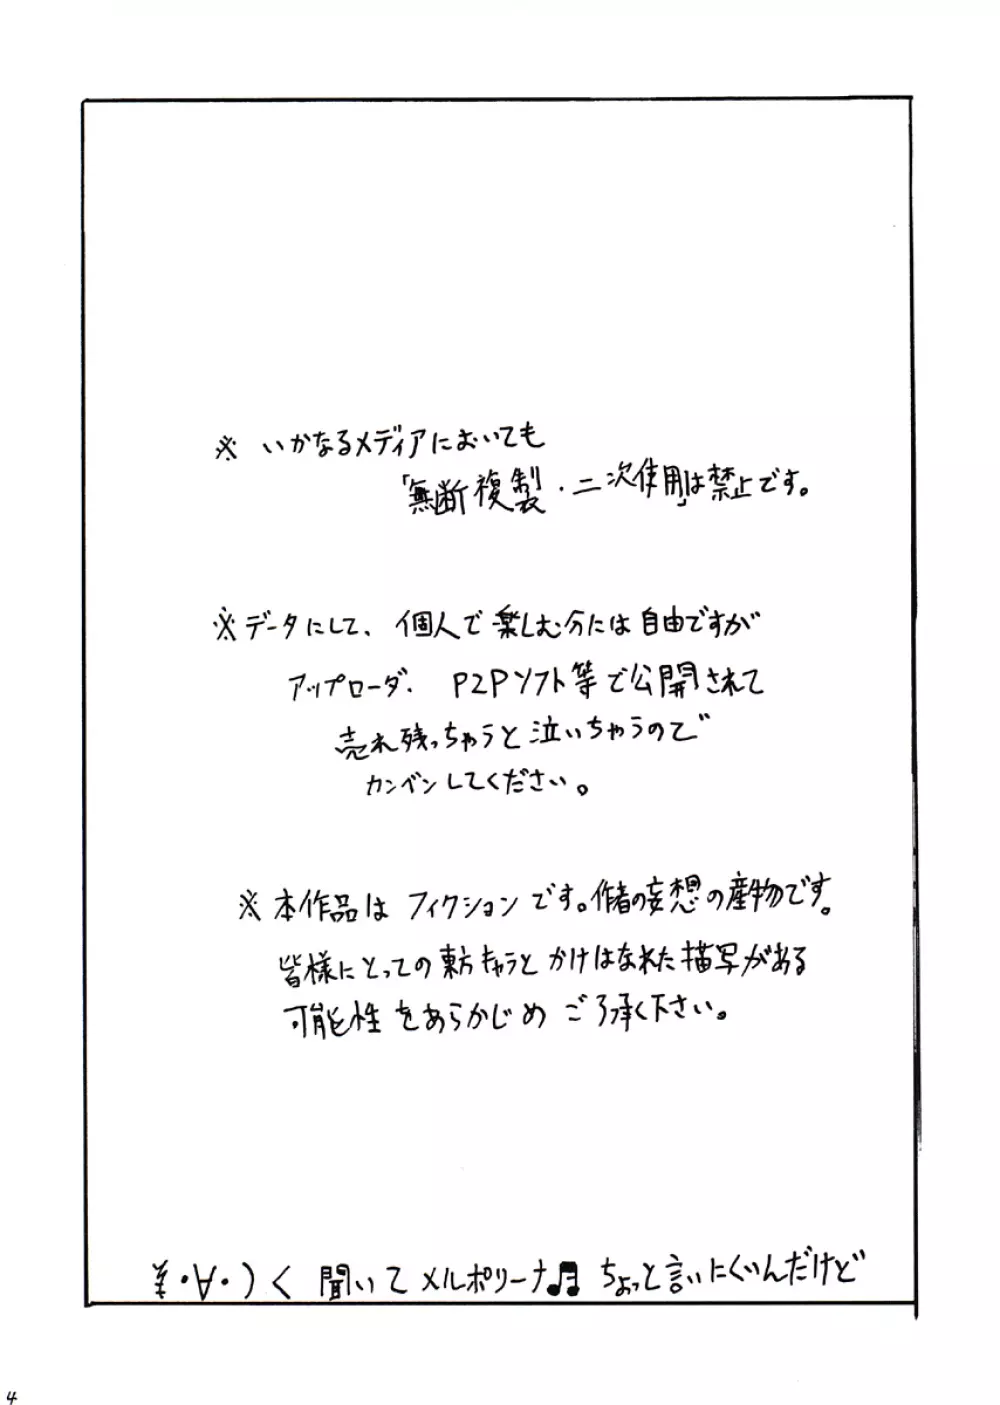 ※ いかなるメディアにおいても
「無断複製・二次使用」は禁止です。
※データにして、個人で楽しむ分には自由ですが
アップローダ、P2Pソフト等で公開されて
売れ残っちゃうと泣いちゃうので
カンベンしてください。
※本作品はフィクションです。作者の妄想の産物です。
皆様にとっての東方キャラとかけはなれた描写がある
可能性をあらかじめご了承く下さい。
¥・∀・)く 聞いてメルポリーナ♫ ちょっと言いにくいんだけど
4